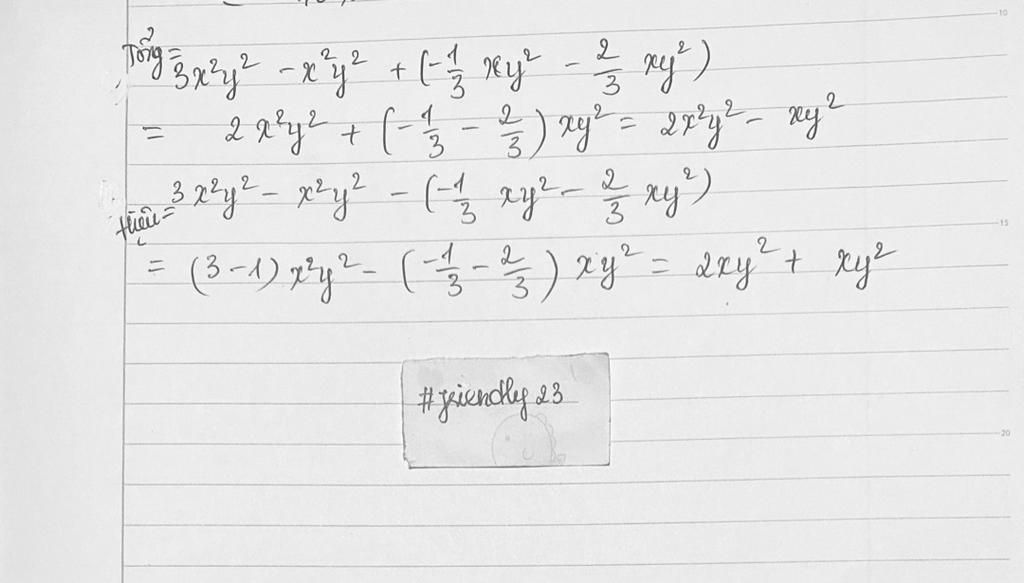 Tổng = 3x²y² - x²y² + (-1/3 xy² - 2/3 xy²)
= 2x²y² + (-1/3 - 2/3) xy² = 2x²y² - xy²
Hiệu = 3x²y² - x²y² - (-1/3 xy² - 2/3 xy²)
= (3-1)x²y² - (-1/3 - 2/3) xy² = 2xy² + xy²
#friendly 23
10
15
20